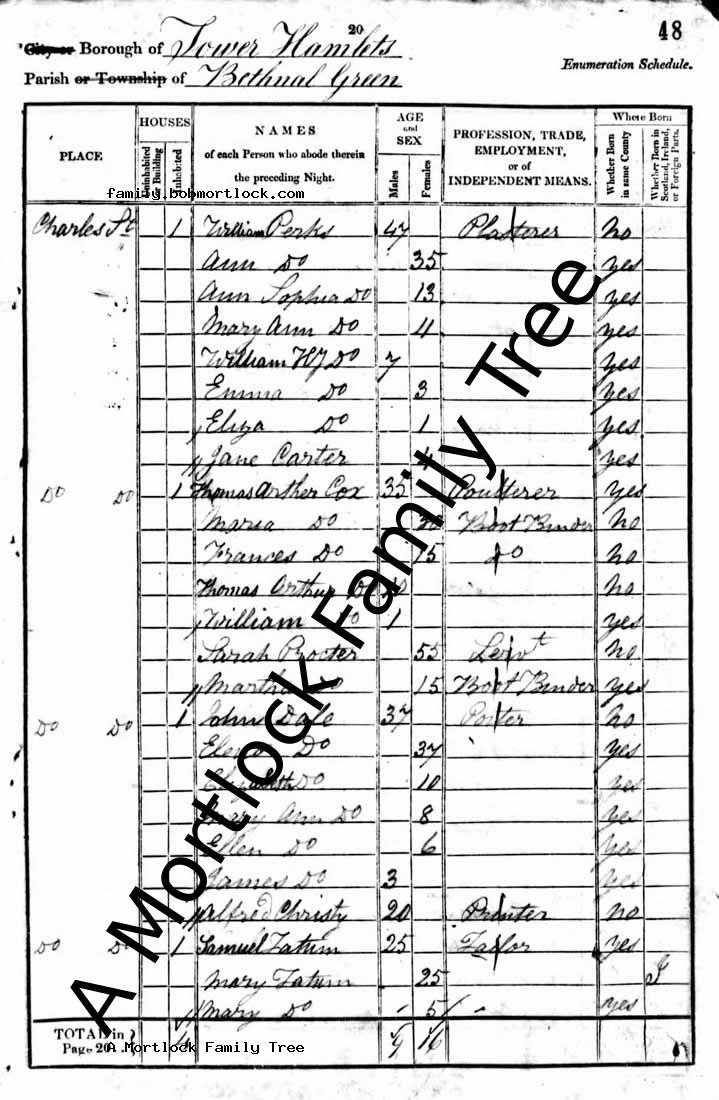 20
48
City or Borough of Tower Hamlets
Enumeration Schedule.
Parish or Township of Bethnal Green
PLACE
HOUSES
Uninhabited or Building
Inhabited
NAMES
of each Person who abode therein
the preceding Night.
AGE
and
SEX
Males
Females
PROFESSION, TRADE,
EMPLOYMENT,
or of
INDEPENDENT MEANS.
Where Born
Whether Born in same County
Whether Born in Scotland, Ireland, or Foreign Parts.
family.bobmortlock.com
Charles St 1 William Perks 47 Plasterer no
Ann Do 35 yes
Ann Sophia Do 13 yes
Mary Ann Do 11 yes
William HJ Do 7 yes
Emma Do 3 yes
Eliza Do 1 yes
Jane Carter 4 yes
Do Do 1 Thomas Arther Cox 35 Poulterer yes
Maria Do 30 Boot Binder no
Frances Do 15 do no
Thomas Arthur Do no
William Do 1 yes
Sarah Procter 55 no
Martha Do 15 Boot Binder yes
Do Do 1 John Dale 37 Porter no
Do 37 yes
Elizabeth Do 10 yes
Mary Ann Do 8 yes
Ellen Do 6 yes
James Do 3 yes
Alfred Christy 20 Printer no
Do Do 1 Samuel Tatum 25 Tailor yes
Mary Tatum 25 I
Mary Do 5 yes
TOTAL in
Page 20 4 9 16
A Mortlock Family Tree
A Mortlock Family Tree